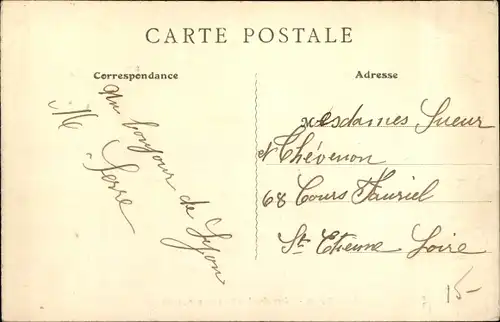 CARTE POSTALE
Correspondance
Adresse
Un bonjour de Lyon
M. Serre
Mesdames Sueur
et Thévenon
68 Cours Fauriel
St Etienne Loire
15-